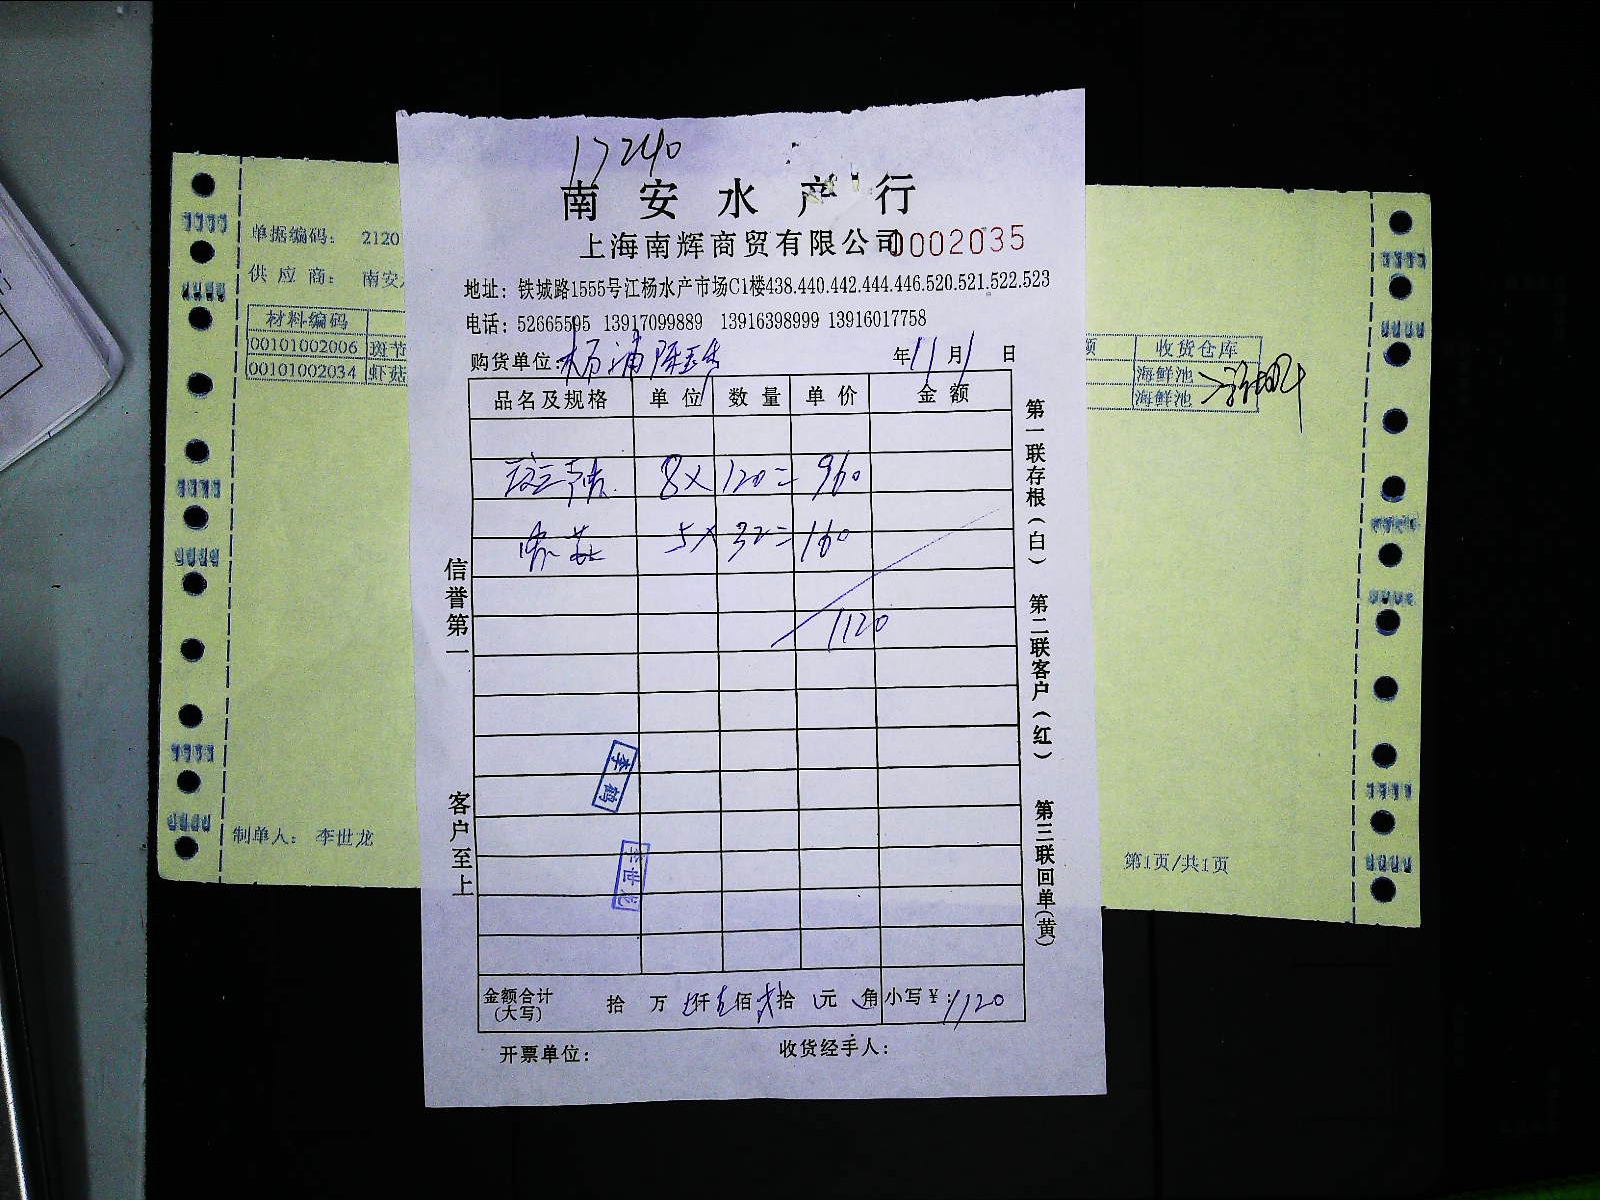 17240
南安水产行
上海南辉商贸有限公司 0002035
地址：铁城路1555号江杨水产市场C1楼438.440.442.444.446.520.521.522.523
电话：52665595 13917099889 13916398999 13916017758
购货单位： 杨浦 年11月1日
品名及规格 单位 数量 单价 金额
斑节 8× 120= 960
虾菇 5× 32= 160
1120
金额合计(大写) 拾 万 仟 佰 拾 元 角 小写￥：1120
开票单位： 收货经手人：
信誉第一
客户至上
第一联存根(白) 第二联客户(红) 第三联回单(黄)
李鹤
李世龙
单据编码： 2120
供应商： 南安
材料编码
00101002006 斑节
00101002034 虾菇
制单人： 李世龙
额 收货仓库
海鲜池
海鲜池
第1页/共1页